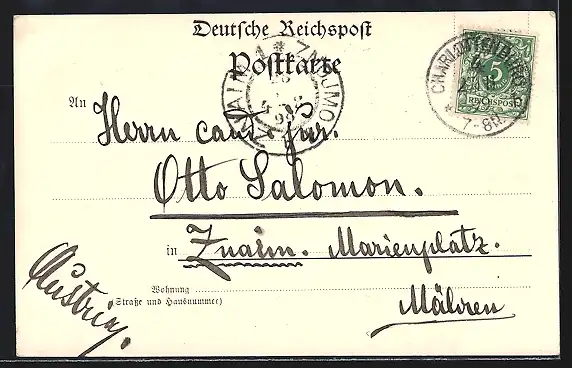 Deutsche Reichspost
Postkarte
CHARLOTTENBURG
7-8N.
5
REICHSPOST
ZNAIM 1 * ZNOJMO
98
An Herrn cand. jur.
Otto Salomon.
in Znaim. Marienplatz.
Wohnung
(Straße und Hausnummer)
Mähren
Austria.